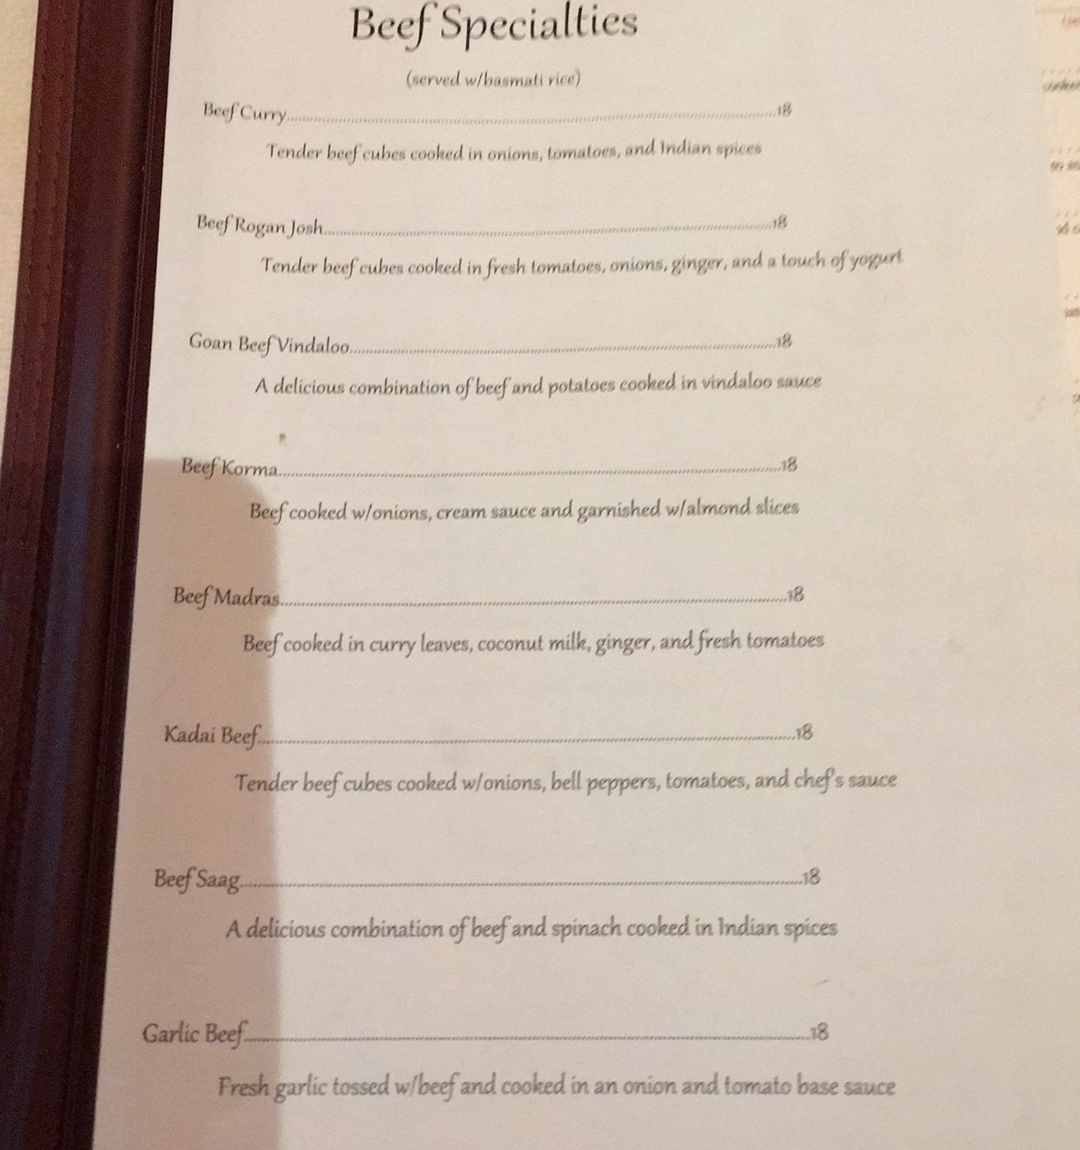 Beef Specialties
(served w/basmati rice)
Beef Curry..........18
Tender beef cubes cooked in onions, tomatoes, and Indian spices
Beef Rogan Josh..........18
Tender beef cubes cooked in fresh tomatoes, onions, ginger, and a touch of yogurt
Goan Beef Vindaloo..........18
A delicious combination of beef and potatoes cooked in vindaloo sauce
Beef Korma..........18
Beef cooked w/onions, cream sauce and garnished w/almond slices
Beef Madras..........18
Beef cooked in curry leaves, coconut milk, ginger, and fresh tomatoes
Kadai Beef..........18
Tender beef cubes cooked w/onions, bell peppers, tomatoes, and chef's sauce
Beef Saag..........18
A delicious combination of beef and spinach cooked in Indian spices
Garlic Beef..........18
Fresh garlic tossed w/beef and cooked in an onion and tomato base sauce